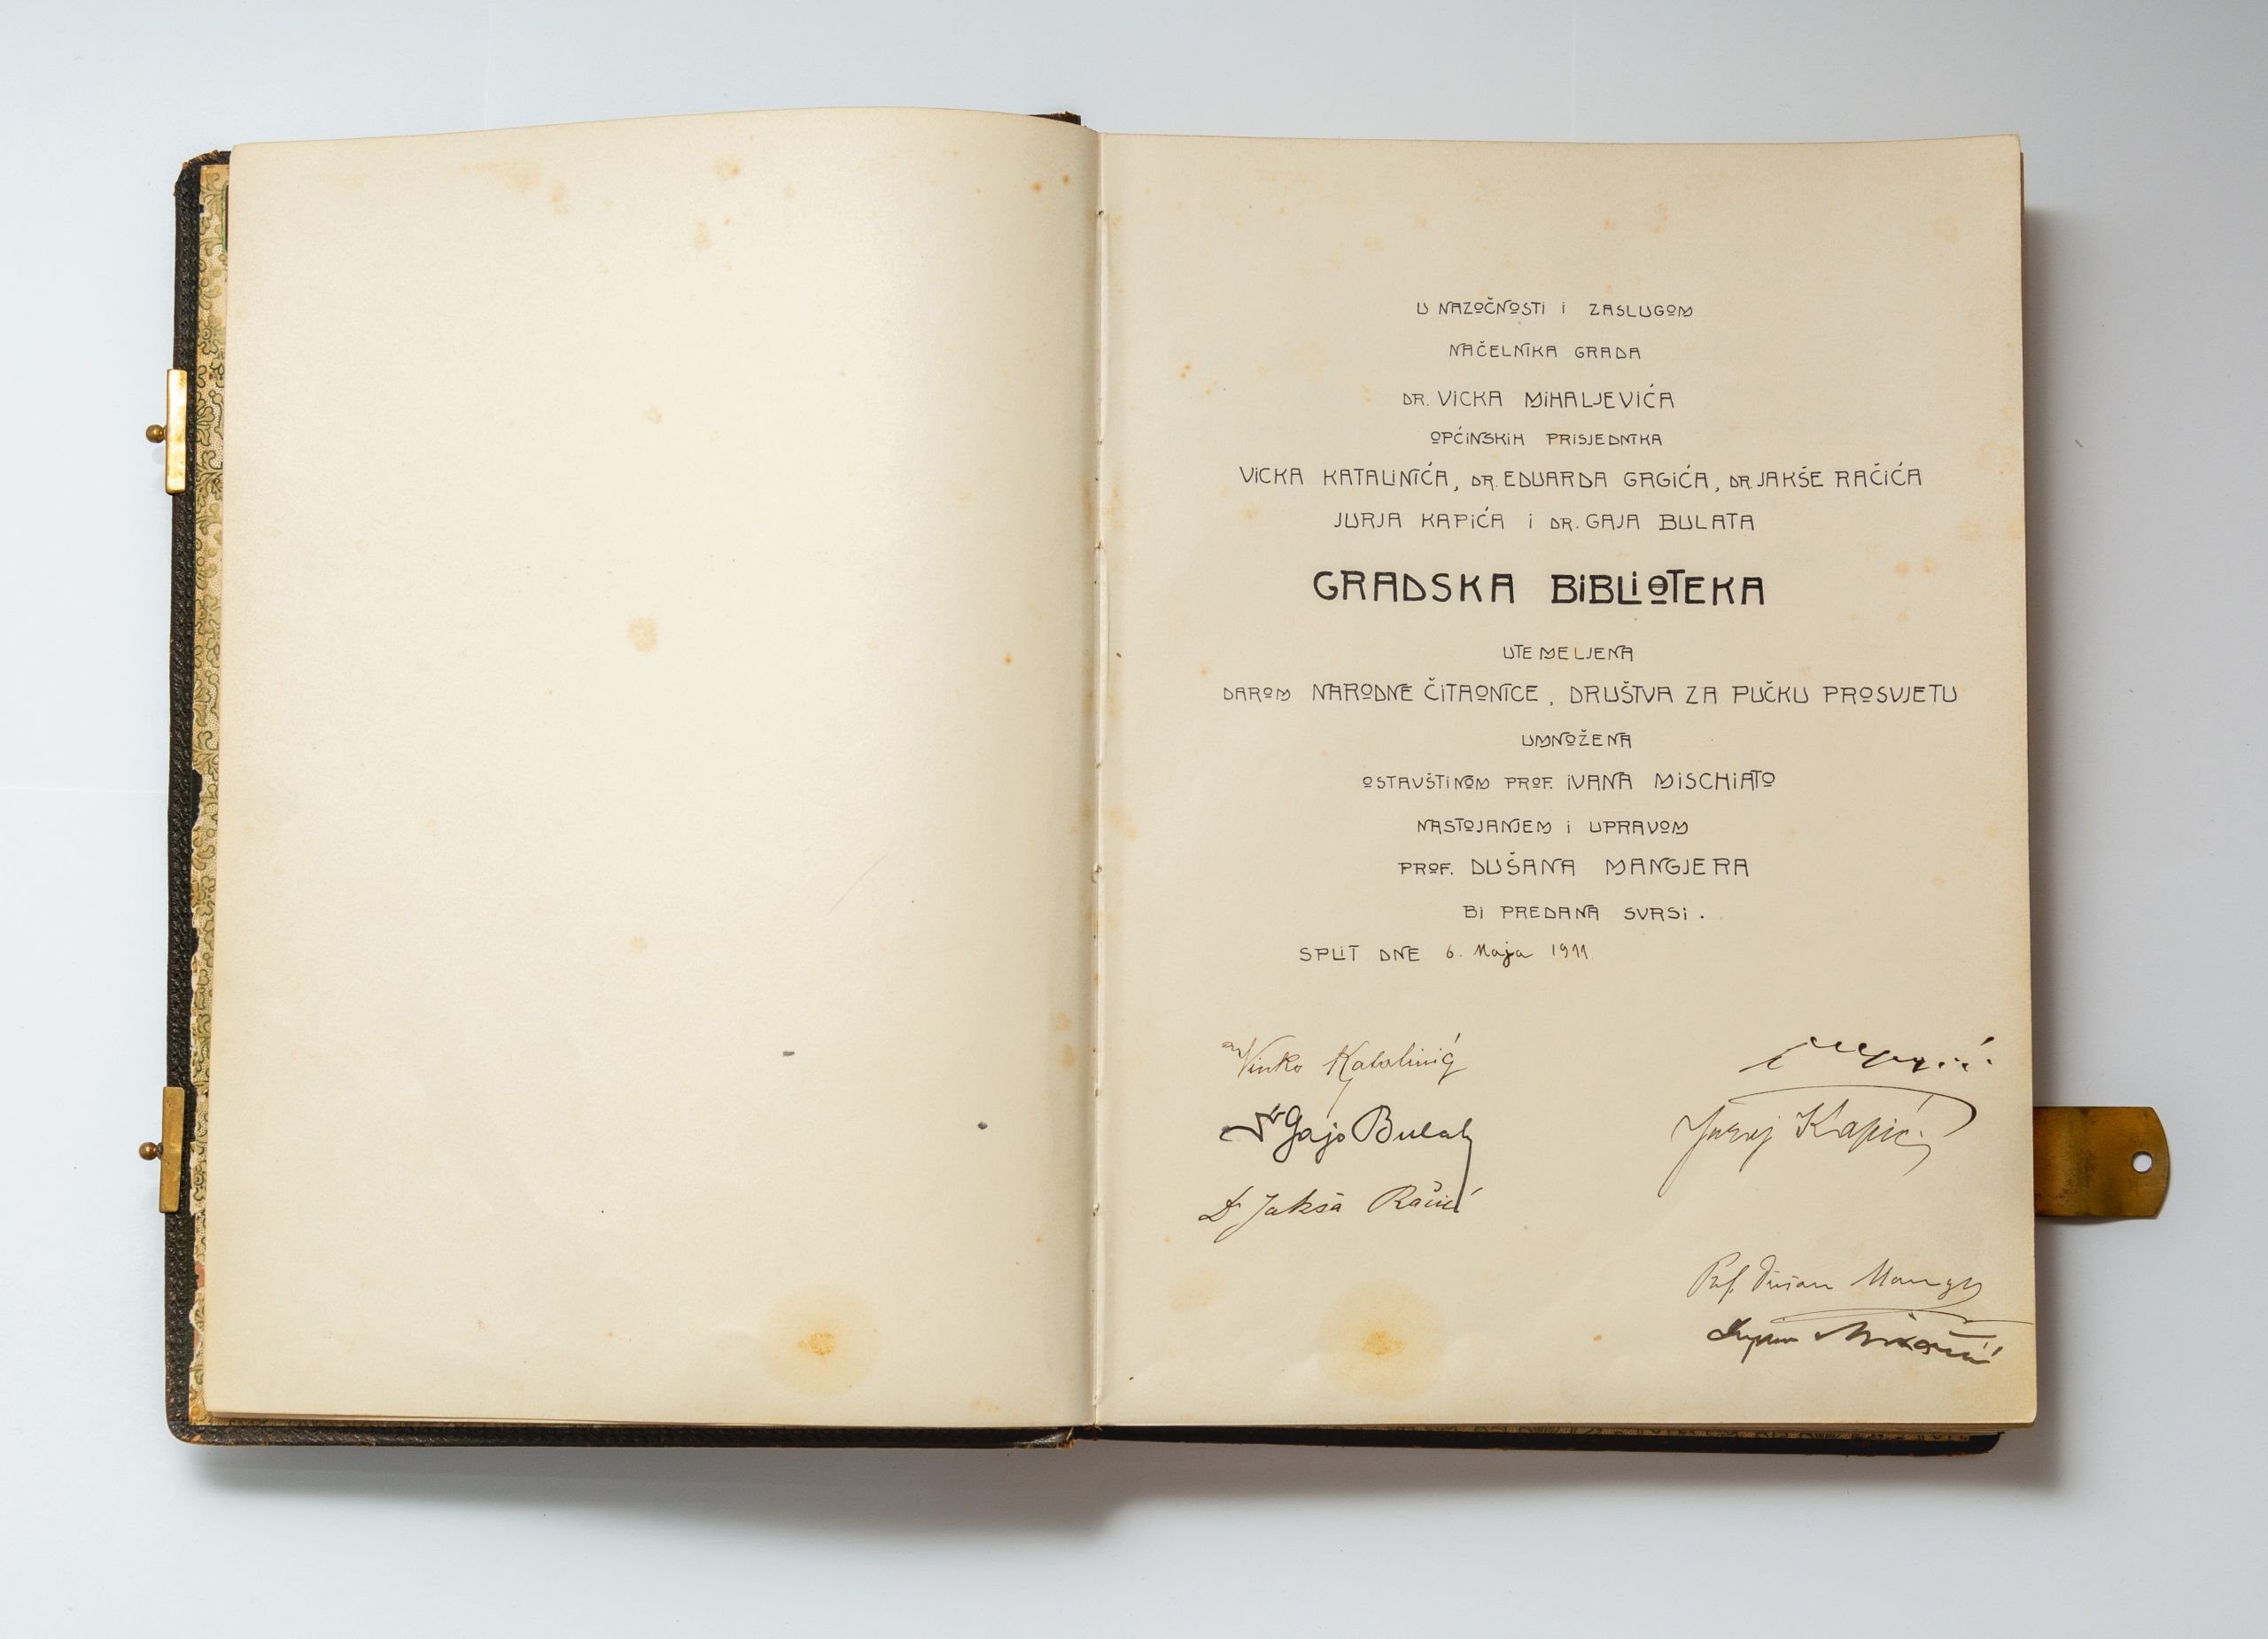 U NAZOČNOSTI I ZASLUGOM
NAČELNIKA GRADA
DR. VICKA MIHALJEVIĆA
OPĆINSKIH PRISJEDNIKA
VICKA KATALINIĆA, DR. EDUARDA GRGIĆA, DR JAKŠE RAČIĆA
JURJA KAPIĆA I DR. GAJA BULATA
GRADSKA BIBLIOTEKA
UTEMELJENA
DAROM NARODNE ČITAONICE, DRUŠTVA ZA PUČKU PROSVJETU
UMNOŽENA
OSTAVŠTINOM PROF. IVANA MISCHIATO
NASTOJANJEM I UPRAVOM
PROF. DUŠANA MANGJERA
BI PREDANA SVRSI.
SPLIT DNE 6. Maja 1911.
Vinko Katalinić
Dr Gajo Bulat
Juraj Kapić
Dr Jakša Račić
Prof. Dušan Mangjer